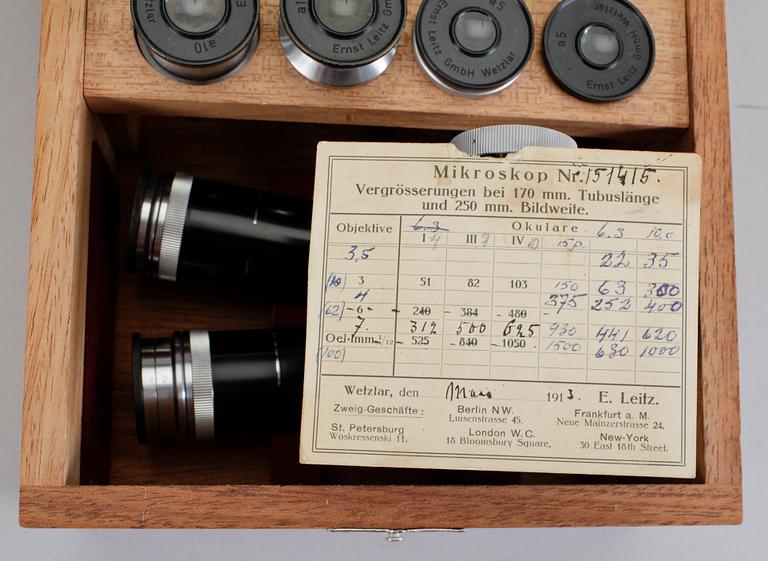 etzlar
a10
Ernst Leitz
Ernst Leitz GmbH Wetzlar
a5
a5
Ernst Leitz GmbH Wetzlar
Mikroskop Nr. 151415.
Vergrösserungen bei 170 mm. Tubuslänge
und 250 mm. Bildweite.
Objektive 6.3 Okulare 6.3 10x
I 4 III 7 IV 10 15p.
3.5 22 35
(10) 3 51 82 103 150 63 300
4 375 252 400
(62) - 6 - 240 - 384 - 480 -
7. 312 500 625 930 441 620
Oel-Imm. 1/12 525 - 840 - 1050 1500 630 1000
(100)
Wetzlar, den 1913. E. Leitz.
Zweig-Geschäfte: Berlin NW. Frankfurt a. M.
Luisenstrasse 45. Neue Mainzerstrasse 24.
St. Petersburg London W.C. New-York
Woskressenski 11. 18 Bloomsbury Square. 30 East 18th Street.